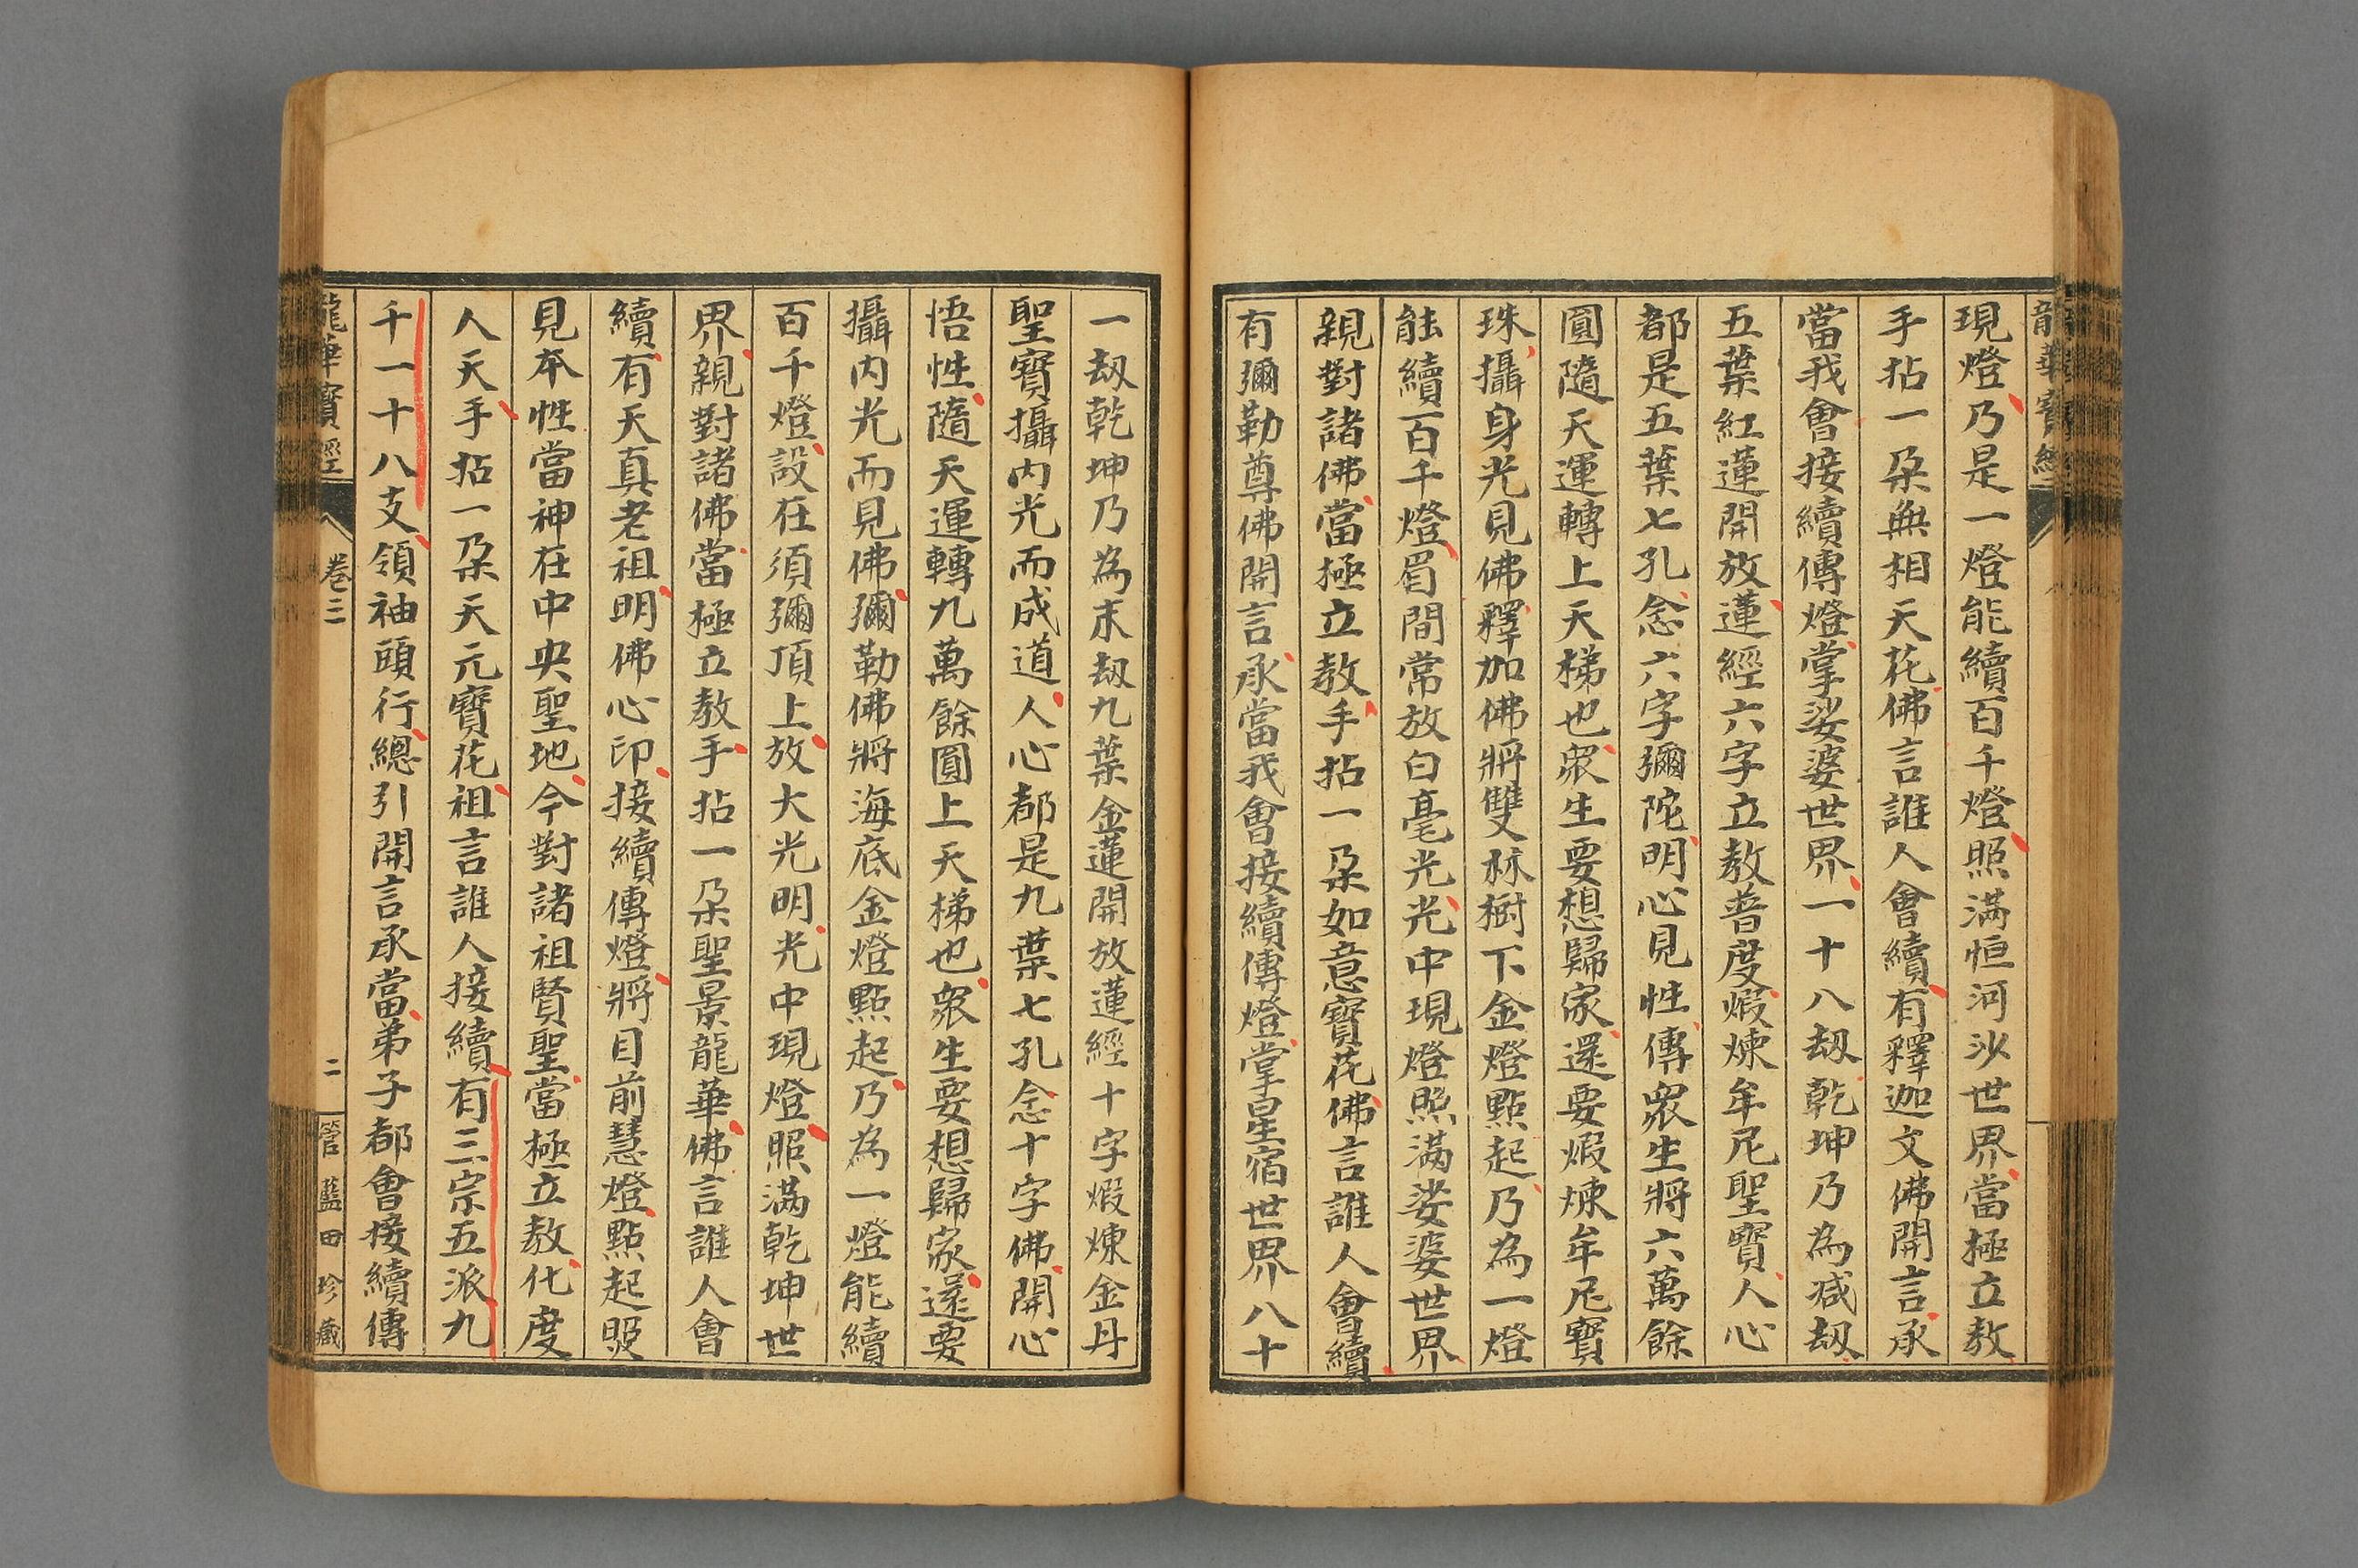 龍華寶經
現燈乃是一燈能續百千燈照滿恒河沙世界當極立教
手拈一朵無相天花佛言誰人會續有釋迦文佛開言承
當我會接續傳燈掌娑婆世界一十八刼乾坤乃為減刼
五葉紅蓮開放蓮經六字立教普度煆煉牟尼聖寶人心
都是五葉七孔念六字彌陀明心見性傳眾生將六萬餘
圓隨天運轉上天梯也眾生要想歸家還要煆煉牟尼寶
珠攝身光見佛釋加佛將雙林樹下金燈點起乃為一燈
能續百千燈眉間常放白毫光光中現燈照滿娑婆世界
親對諸佛當極立教手拈一朵如意寶花佛言誰人會續
有彌勒尊佛開言承當我會接續傳燈掌星宿世界八十
一刼乾坤乃為末刼九葉金蓮開放蓮經十字煆煉金丹
聖寶攝內光而成道人心都是九葉七孔念十字佛開心
悟性隨天運轉九萬餘圓上天梯也眾生要想歸家還要
攝內光而見佛彌勒佛將海底金燈點起乃為一燈能續
百千燈設在須彌頂上放大光明光中現燈照滿乾坤世
界親對諸佛當極立教手拈一朵聖景龍華佛言誰人會
續有天真老祖明佛心印接續傳燈將目前慧燈點起照
見本性當神在中央聖地今對諸祖賢聖當極立教化度
人天手拈一朵天元寶花祖言誰人接續有三宗五派九
千一十八支領袖頭行總引開言承當弟子都會接續傳
龍華寶經
卷三
二
管藍田珍藏